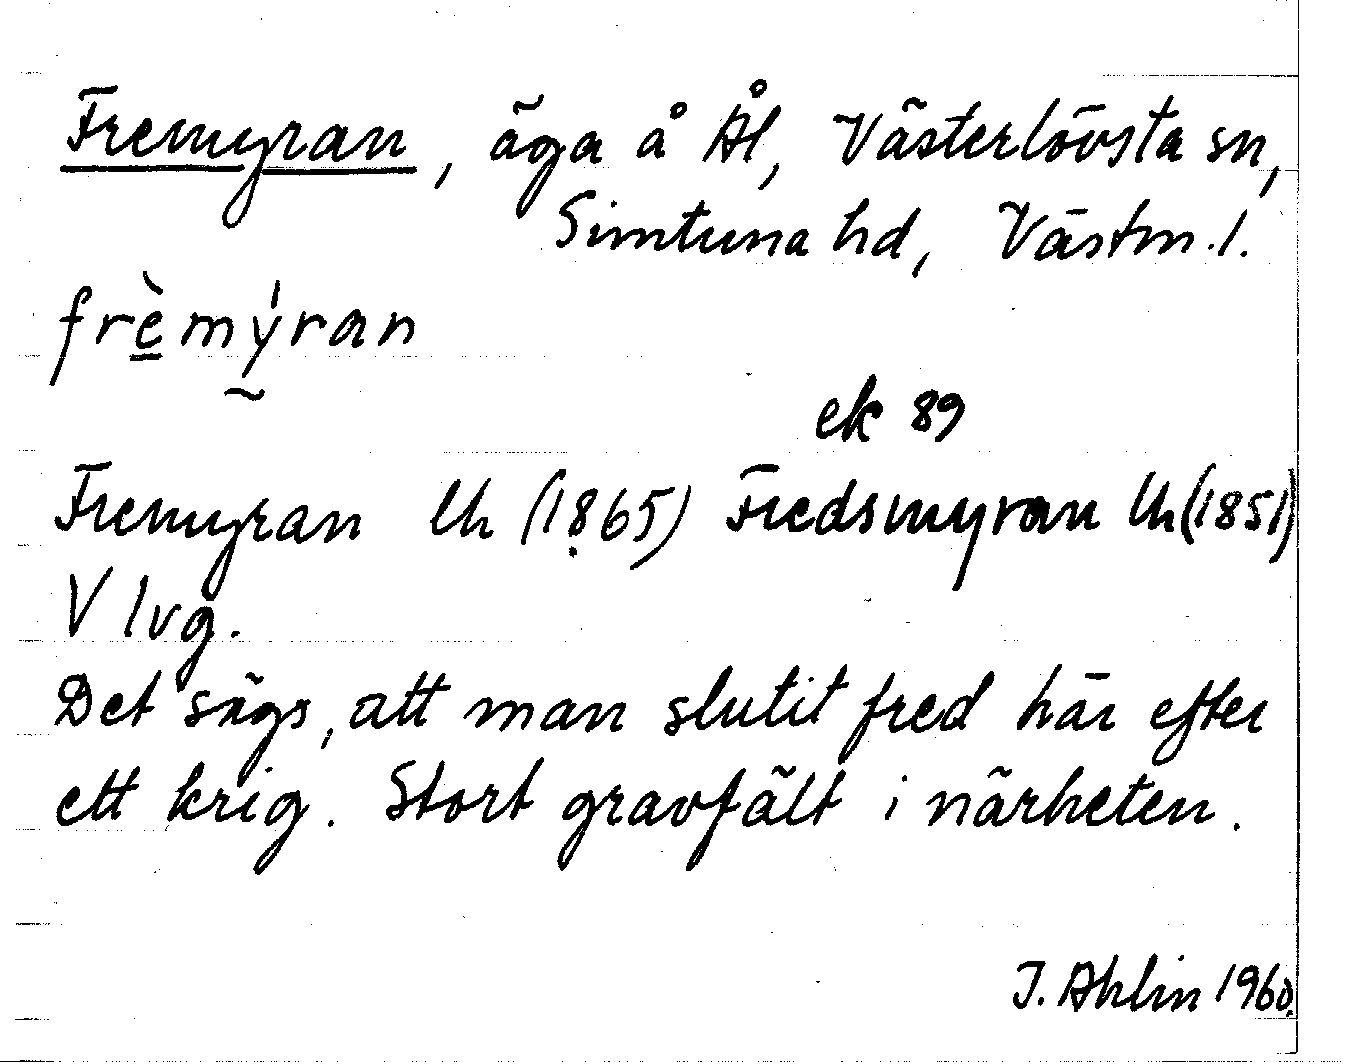 Fremyran, äga å Ål, Västerlövsta sn,
Simtuna hd, Västm. l.
frèmýran
ek 89
Fremyran Uh (1865) Fredsmyran Uh (1851)
V lvg.
Det sägs, att man slutit fred här efter
ett krig. Stort gravfält i närheten.
J. Ahlin 1960.